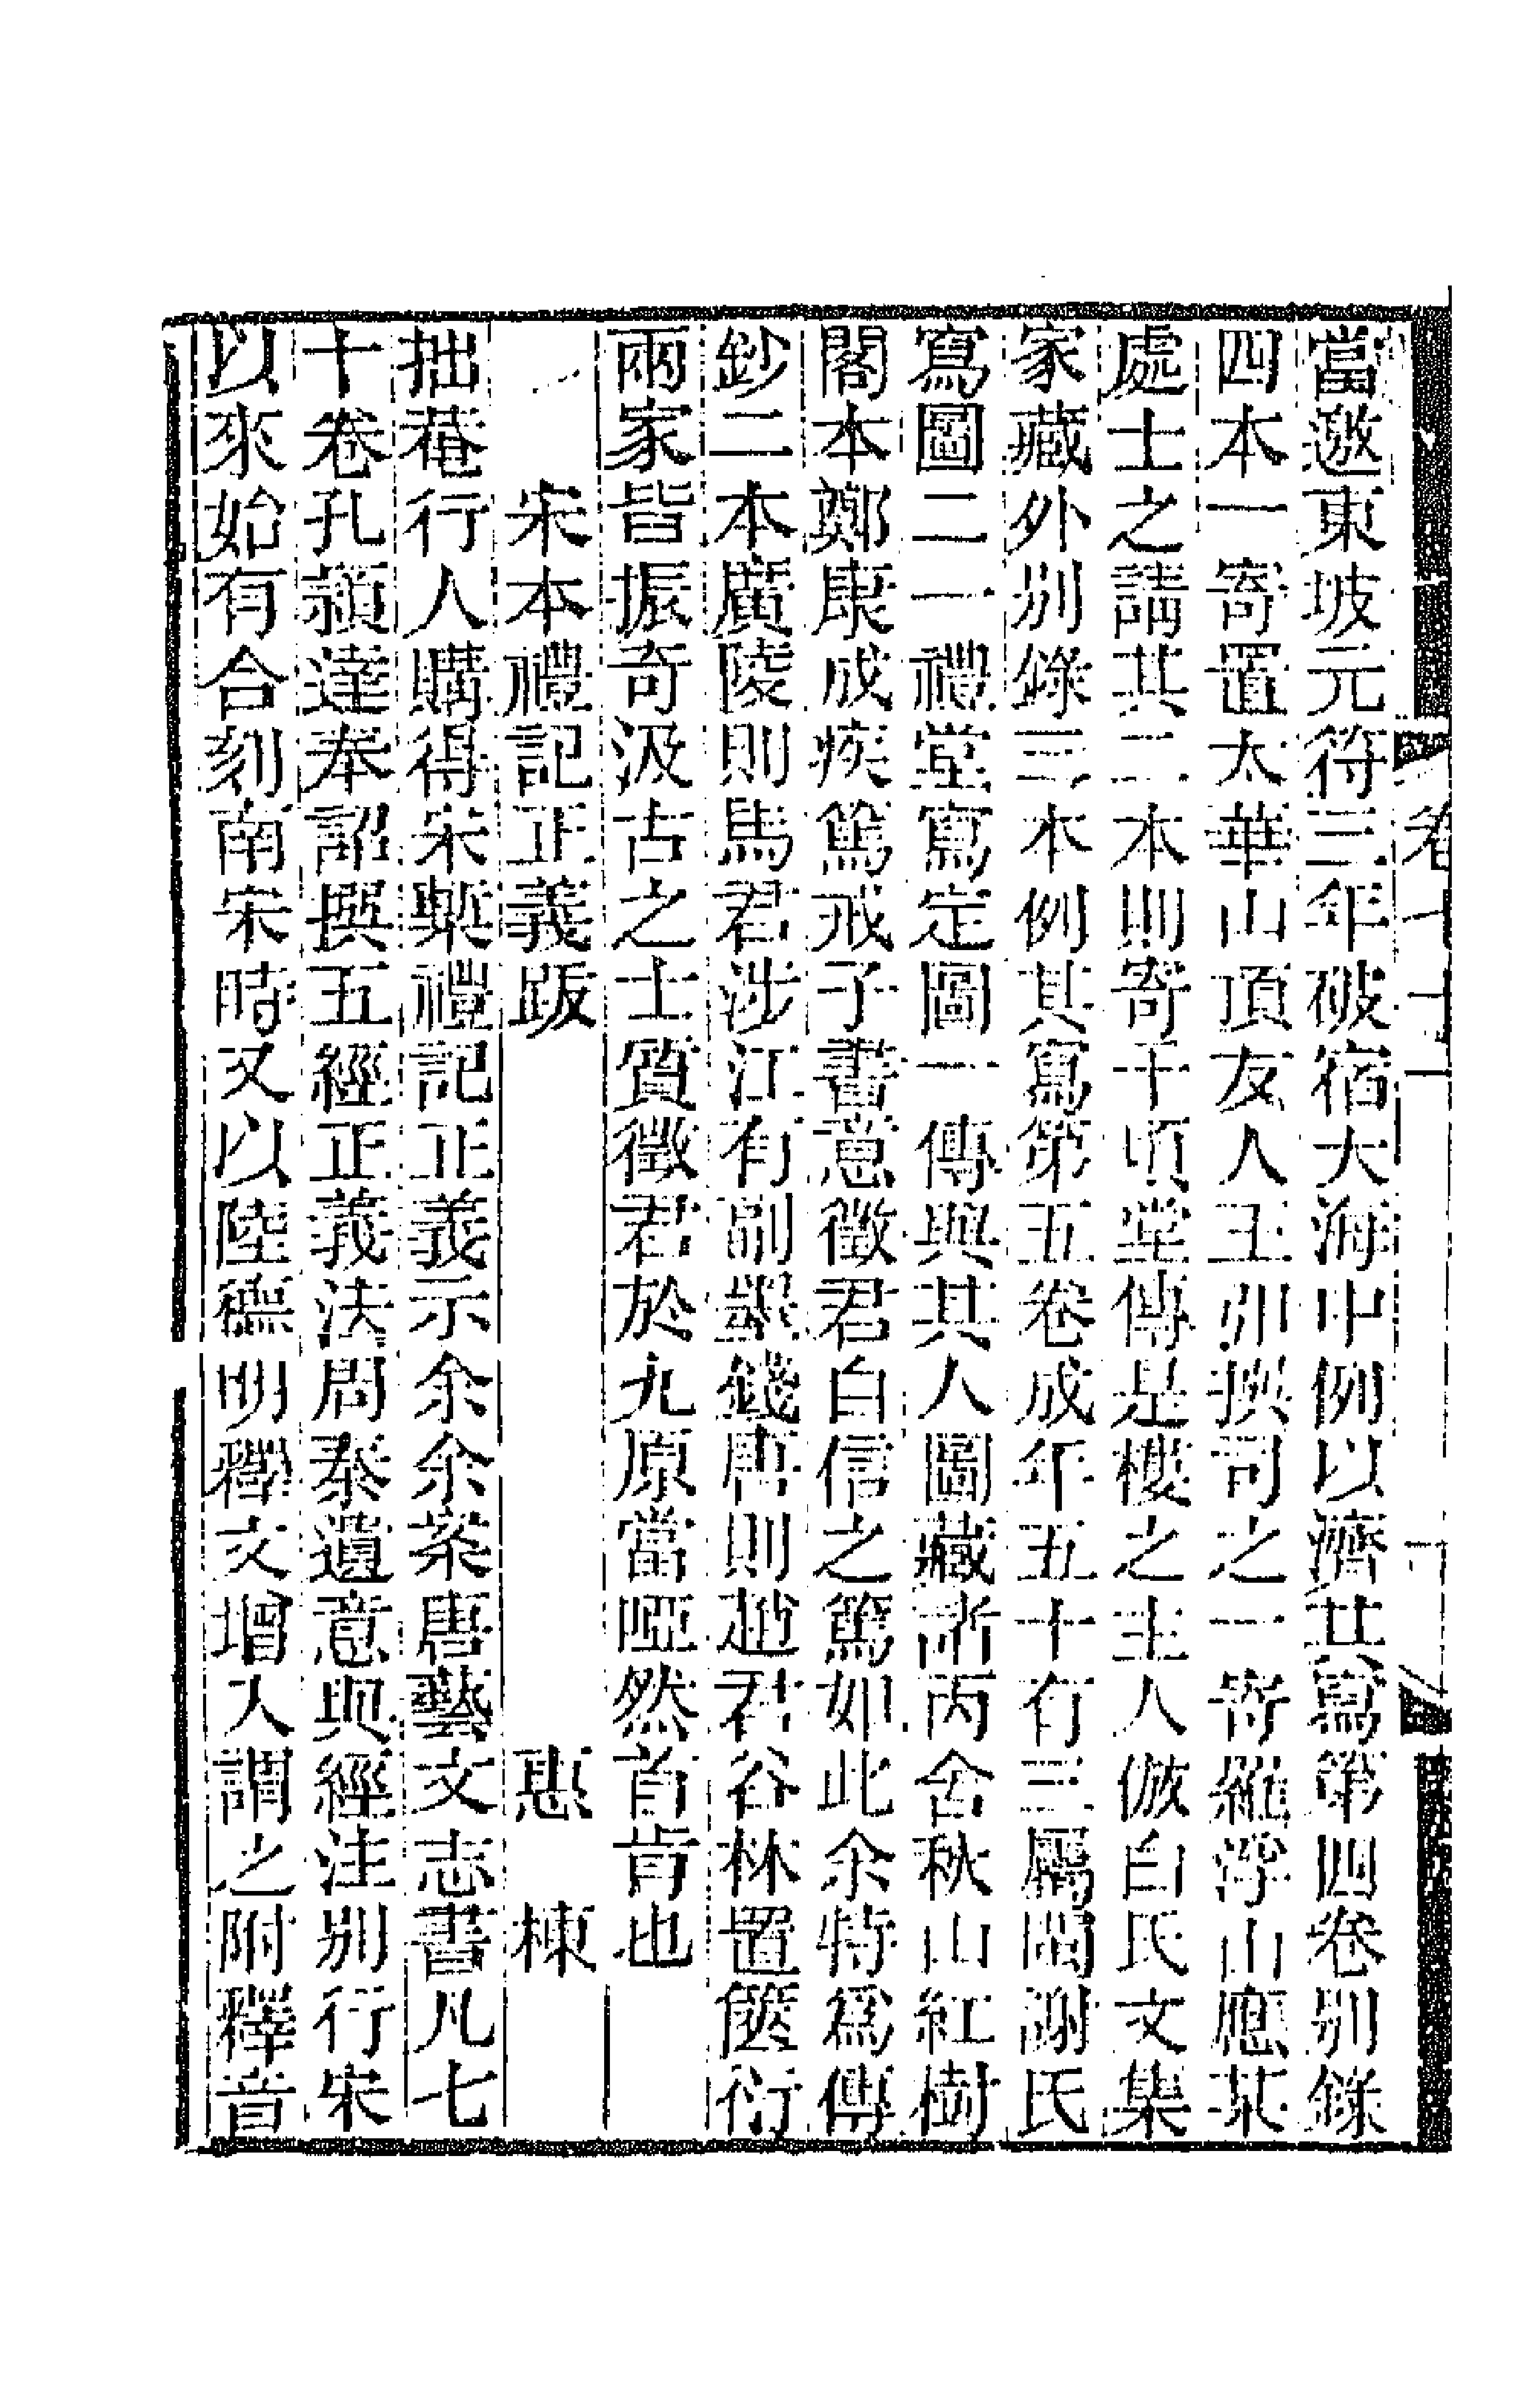 卷七十一
當邀東坡元符三年破宿大海中例以濟其寫第四卷别錄
四本一寄置太華山頂友人王卯撰司之一寄羅浮山應某
處士之請其二本則寄千頃堂傳是樓之主人倣白氏文集
家藏外别錄三本例其寫第五卷成年五十有三屬閩謝氏
寫圖二一禮堂寫定圖一傳與其人圖藏諸丙舍秋山紅樹
閣本鄭康成疾篤戒子書意徵君自信之篤如此余特爲傳
鈔二本廣陵則馬君涉江有副墨錢唐則趙君谷林置篋衍
兩家皆振奇汲古之士質徵君於九原當啞然首肯也
宋本禮記正義跋　惠棟
拙菴行人購得宋槧禮記正義示余余案唐藝文志書凡七
十卷孔穎達奉詔撰五經正義法周秦遺意與經注别行宋
以來始有合刻南宋時又以陸德明釋文增入謂之附釋音